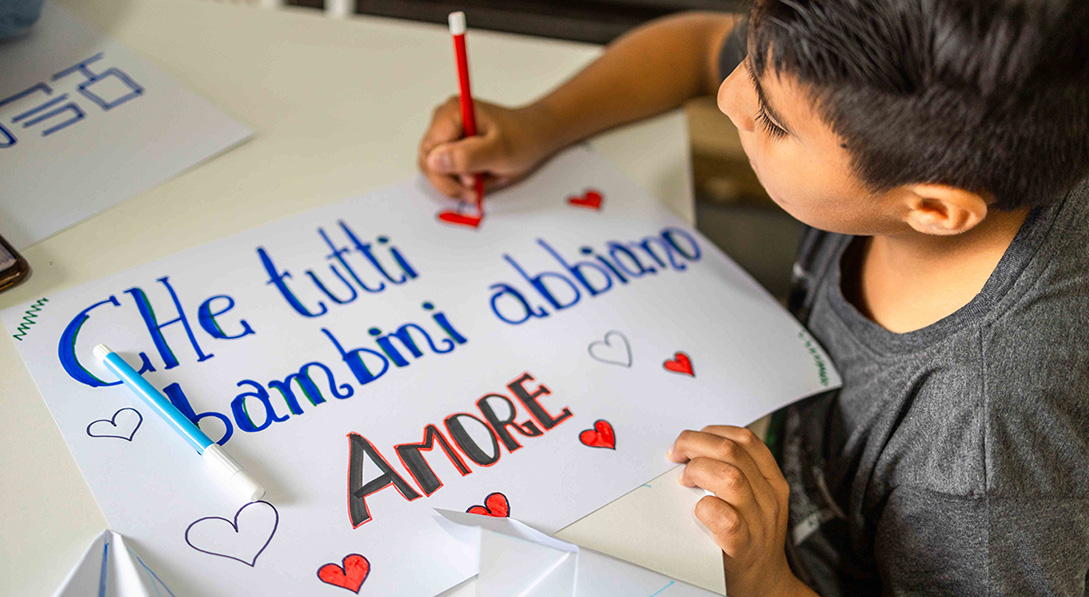 CHe tutti
bambini abbiano
AMORE